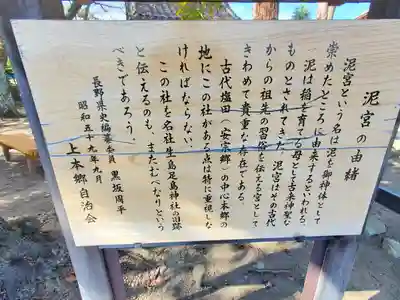 泥宮の由緒
泥宮という名は泥を御神体として
崇めたところに由来するといわれる。
泥は稲を育てる母として古来神聖な
ものとされてきた。泥宮はその古代
からの祖先の習俗を伝える宮として
きわめて貴重な存在である。
古代塩田(安宗郷)の中心本郷の
地にこの社がある点は特に重視しな
ければならない。
この社を名社生島足島神社の旧跡
と伝えるのも、またむべなりという
べきであろう。
長野県史編纂委員 黒坂周平
昭和五十九年九月
上本郷自治会